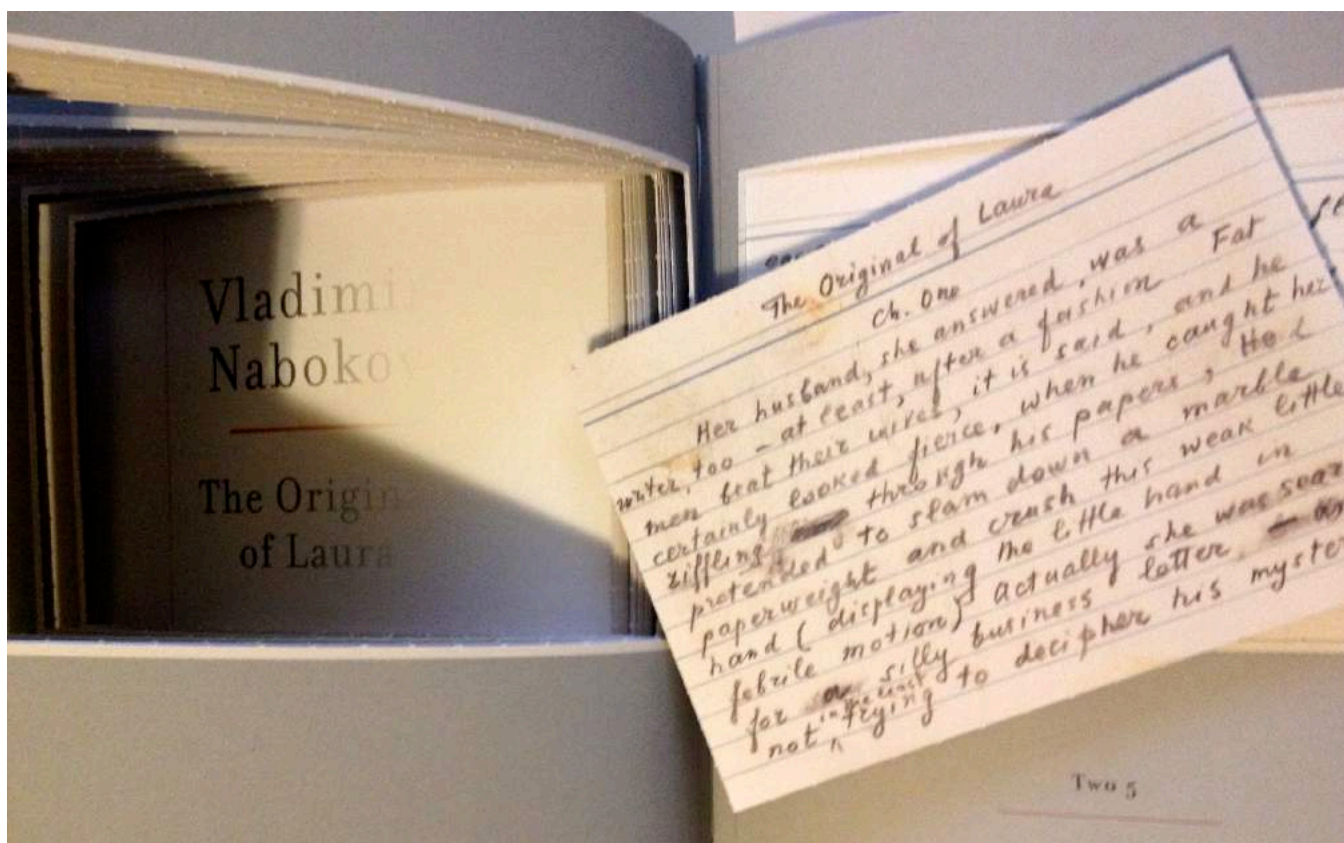 Vladimi
Naboko
The Origin
of Laura
The Original of Laura
Ch. One
Her husband, she answered, was a
writer, too – at least, after a fashion. Fat
men beat their wives, it is said, and he
certainly looked fierce, when he caught her
riffling through his papers. He
pretended to slam down a marble
paperweight and crush this weak little
hand (displaying the little hand in
febrile motion) Actually she was sear
for silly business letter
not in the least trying to decipher his myste
Two 5